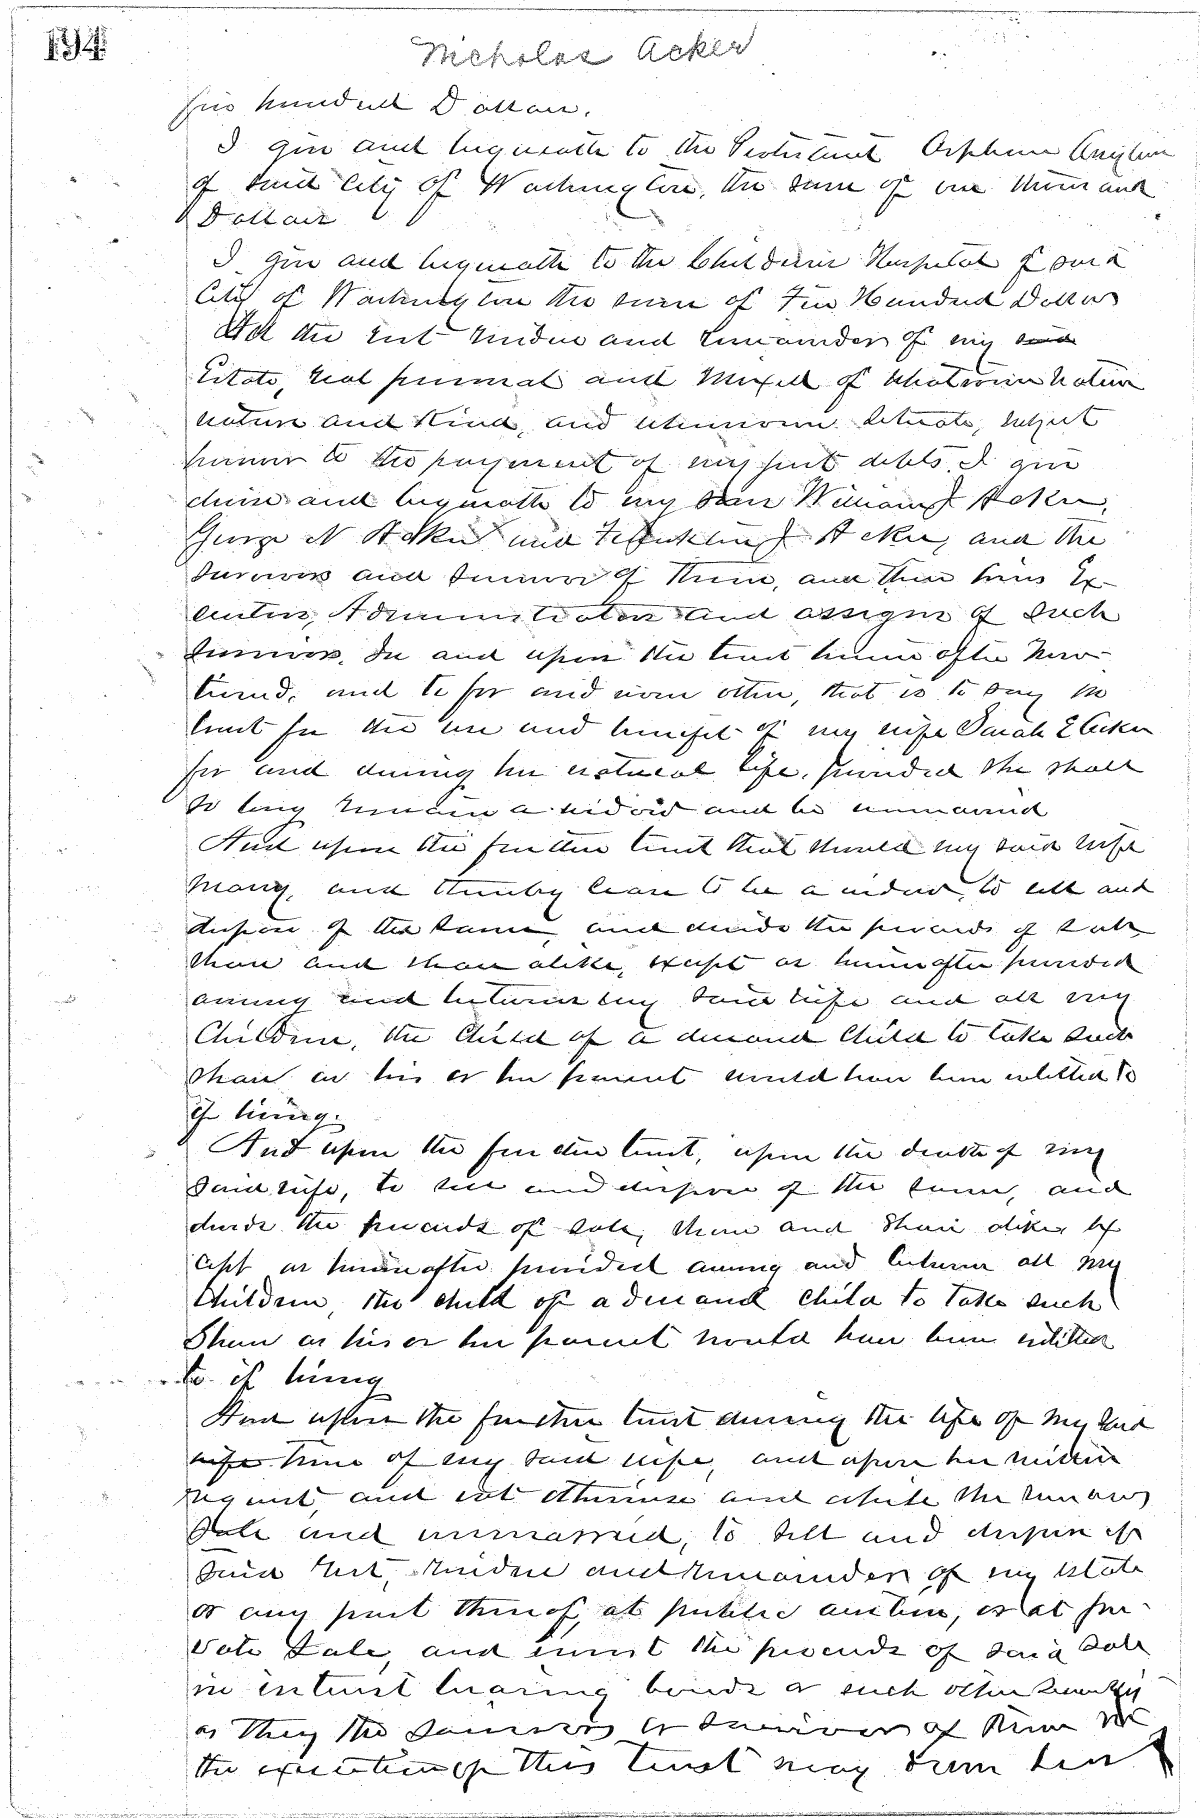 194
Nicholas Acker
five hundred Dollars.
I give and bequeath to the Protestant Orphan Asylum
of said City of Washington, the sum of one thousand
Dollars
I give and bequeath to the Childrens Hospital of said
City of Washington the sum of Five Hundred Dollars
All the rest residue and remainder of my said
Estate, real personal and mixed of whatsoever nature
nature and kind, and whensoever situate, subject
however to the payment of my just debts. I give
devise and bequeath to my sons William J Acker,
George N Acker and Franklin J Acker, and the
survivors and survivor of them, and their heirs Ex-
ecutors, Administrators and assigns of such
survivor. In and upon the trust herein after men-
tioned, and to for and none other, that is to say in
trust for the use and benefit of my wife Sarah E Acker
for and during her natural life, provided she shall
so long remain a widow and be unmarried
And upon the further trust that should my said wife
marry, and thereby cease to be a widow, to sell and
dispose of the same, and divide the proceeds of sale
share and share alike, except as hereinafter provided
among and between my said wife and all my
Children, the Child of a deceased Child to take such
share as his or her parent would have been entitled to
if living.
And upon the further trust, upon the death of my
said wife, to sell and dispose of the same, and
divide the proceeds of sale, share and share alike, ex
cept as hereinafter provided among and between all my
Children, the child of a deceased child to take such
share as his or her parent would have been entitled
to if living
And upon the further trust during the life of my said
wife time of my said wife, and upon her written
request, and not otherwise and while she remains
sole and unmarried, to sell and dispose of
said rest, residue and remainder of my estate
or any part thereof, at public auction, or at pri-
vate sale, and invest the proceeds of said sale
in interest bearing bonds or such other security
as they the survivors or survivor of them in
the execution of this trust may deem best